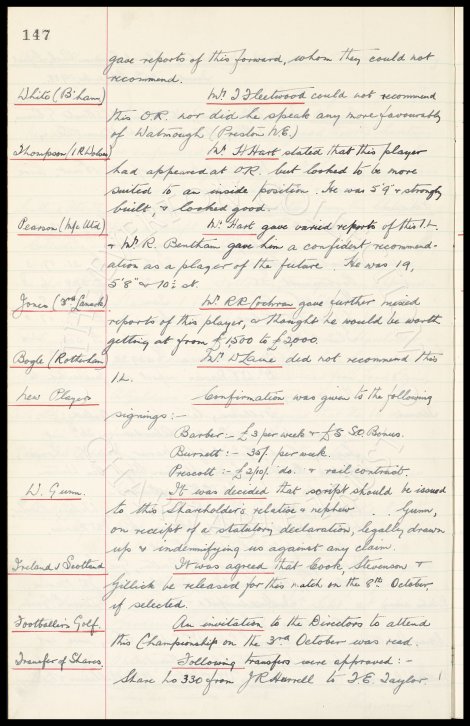 147
gave reports of this forward, whom they could not
recommend.
White (B'ham) Mr. J Fleetwood could not recommend
this O.R. nor did he speak any more favourably
of Watmough (Preston N.E.)
Thompson (R Wolves) Mr. H Hart stated that this player
had appeared at O.R. but looked to be more
suited to an inside position. He was 5'9" & strongly
built, & looked good.
Pearson (M/c Utd) Mr. Hart gave varied reports of this I.L.
& Mr. R. Bentham gave him a confident recommend-
ation as a player of the future. He was 19,
5'8" & 10½ st.
Jones (3rd Lanark) Mr. R R Cochran gave further mixed
reports of this player, & thought he would be worth
getting at from £1500 to £2,000.
Bogle (Rotherham) Mr. W Laine did not recommend this
I.L.
New Players Confirmation was given to the following
signings:-
Barber:- £3 per week & £5 S.O. Bonus.
Burnett:- 35/- per week.
Prescott:- £2/10/- do. & rail contract.
W. Gunn. It was decided that script should be issued
to this shareholder's relative & nephew . . Gunn,
on receipt of a statutory declaration, legally drawn
up & indemnifying us against any claim.
Ireland v Scotland It was agreed that Cook, Stevenson &
Gillick be released for this match on the 8th October,
if selected.
Footballers Golf. An invitation to the Directors to attend
this Championship on the 3rd October was read.
Transfer of Shares. Following transfers were approved:-
Share No 330 from J R Harrell to T. E. Taylor.